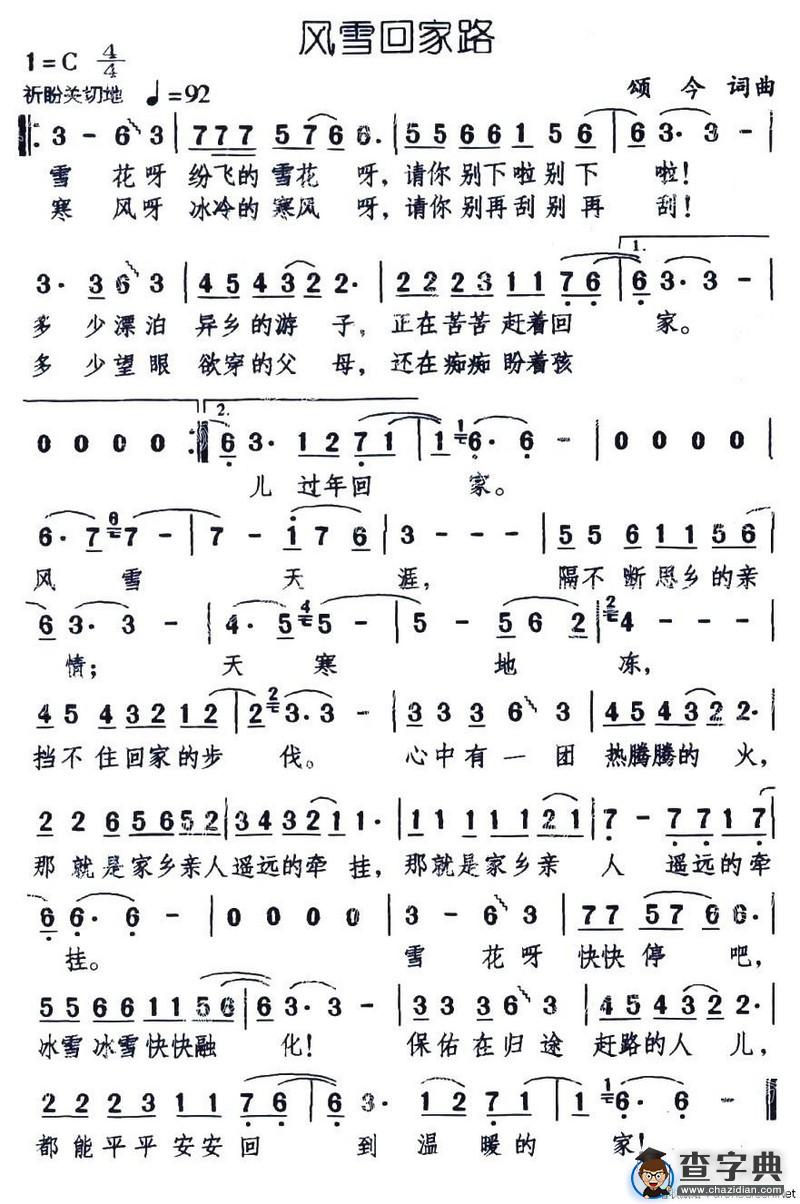 风雪回家路
1=C 4/4
祈盼关切地 ♩=92
颂今 词曲
3 - 6 3 | 7 7 7 5 7 6 6. | 5 5 6 6 1 5 6 | 6 3. 3 - |
雪 花呀 纷飞的雪花 呀,请你别下啦别下 啦!
寒 风呀 冰冷的寒风 呀,请你别再刮别再 刮!
1.
3. 3 6 3 | 4 5 4 3 2 2 2. | 2 2 2 3 1 1 7 6 | 6 3. 3 - |
多 少漂泊 异乡的游 子,正在苦苦赶着回 家。
多 少望眼 欲穿的父 母,还在痴痴盼着孩
2.
0 0 0 0 :| 6 3. 1 2 7 1 | 1 1 6. 6 - | 0 0 0 0 |
儿 过年回 家。
6. 7 6 7 - | 7 - 1 7 6 | 3 - - - | 5 5 6 1 1 5 6 |
风 雪 天 涯, 隔不断思乡的亲
6 3. 3 - | 4. 5 4 5 - | 5 - 5 6 2 | 2 4 - - - |
情; 天 寒 地 冻,
4 5 4 3 2 1 2 | 2 2 3. 3 - | 3 3 3 6 3 | 4 5 4 3 2 2. |
挡不住回家的步 伐。 心中有一团 热腾腾的火,
2 2 6 5 6 5 5 2 | 3 4 3 2 1 1. | 1 1 1 1 1 2 1 | 7 - 7 7 1 7 |
那就是家乡亲人遥远的牵 挂,那就是家乡亲 人 遥远的牵
6 6. 6 - | 0 0 0 0 | 3 - 6 3 | 7 7 5 7 6 6. |
挂。 雪 花呀 快快停 吧,
5 5 5 6 6 1 1 5 6 | 6 3. 3 - | 3 3 3 5 3 3 | 4 5 4 3 2 2. |
冰雪冰雪快快融 化! 保佑在归途 赶路的人儿,
2 2 2 3 1 1 7 6 | 6 3. 1 2 7 1 | 1 6. 6 - |
都能平平安安回 到 温暖的 家!
查字典
www.chazidian.com